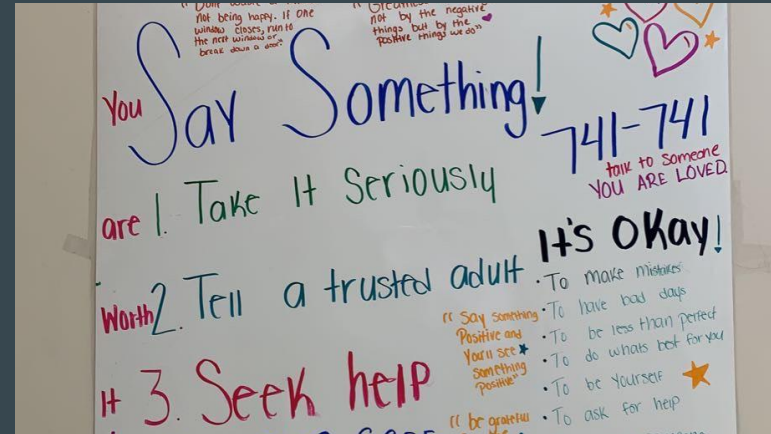 not being happy. If one
window closes, run to
the next window or
break down a door"
" Greatness
not by the negative
things but by the
positive things we do"
You
Say Something!
741-741
talk to someone
YOU ARE LOVED
are
1. Take It Seriously
Worth
2. Tell a trusted adult
It
3. Seek help
It's Okay!
• To make mistakes
• To have bad days
• To be less than perfect
• To do whats best for you
• To be yourself
• To ask for help
" Say something
Positive and
You'll see
something
positive"
" be grateful